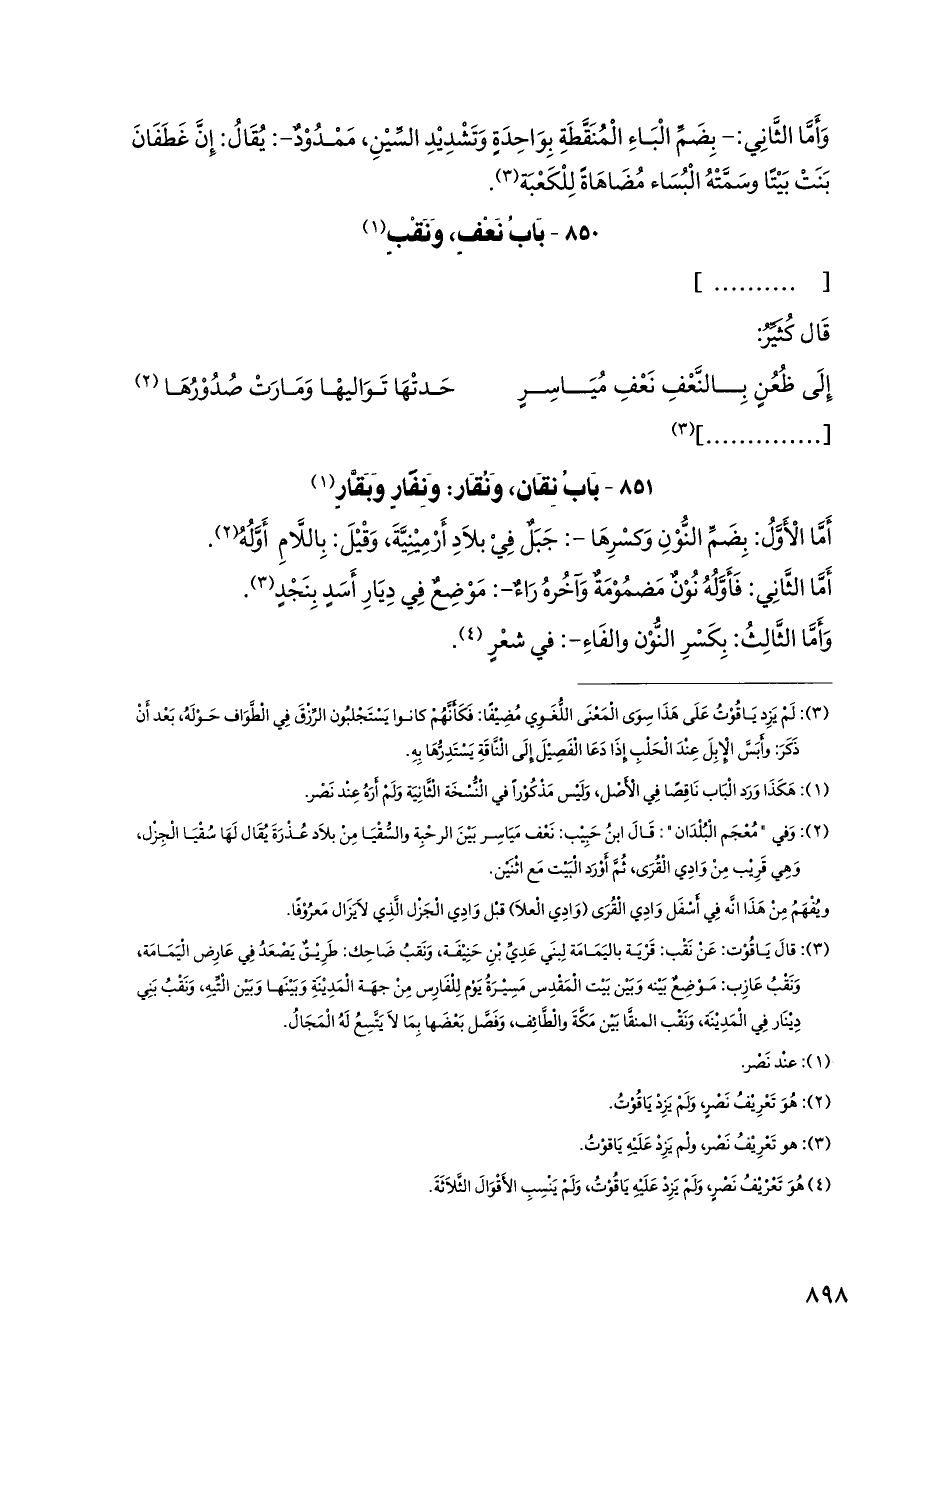 وَأَمَّا الثَّانِي:- بِضَمِّ الْبَاءِ الْمُنَقَّطَةِ بِوَاحِدَةٍ وَتَشْدِيْدِ السِّيْنِ، مَمْـدُوْدٌ-: يُقَالُ: إِنَّ غَطَفَانَ
بَنَتْ بَيْتًا وسَمَّتْهُ الْبُسَاء مُضَاهَاةً لِلْكَعْبَة(٣).
٨٥٠ - بَابُ نَعْفٍ، وَنَقْبٍ(١)
[ .......... ]
قَال كُثَيِّرٌ:
إِلَى ظُعُنٍ بِـــالنَّعْفِ نَعْفِ مُيَـاسِـــرٍ حَـدتْهَا تَـوَاليهْـا وَمَـارَتْ صُدُوْرُهَـا (٢)
[..............](٣)
٨٥١ - بَابُ نِقَان، وَنُقَار: وَنِفَّارٍ وَبَقَّارٍ(١)
أَمَّا الْأَوَّلُ: بِضَمِّ النُّوْنِ وَكسْرِهَا -: جَبَلٌ فِيْ بلاَدِ أَرْمِيْنِيَّةَ، وَقْيْلَ: بِاللَّامِ أَوَّلُهُ(٢).
أَمَّا الثَّانِي: فَأَوَّلُهُ نُوْنٌ مَضمُوْمَةٌ وَآخُرهُ رَاءٌ-: مَوْضِعٌ فِي دِيَارِ أَسَدٍ بِنَجْدٍ(٣).
وَأَمَّا الثَّالِثُ: بِكَسْرِ النُّوْن والفَاءِ-: في شعْرٍ (٤).
(٣): لَمْ يَزِد يَـاقُوْتُ عَلَى هَذَا سِوَى الْمَعْنَى اللُّغَوِي مُضِيْفًا: فَكَأَنَّهُمْ كانـوا يَسْتَجْلِبُون الرِّزْقَ فِي الْطَّوَاف حَـوْلَهُ، بَعْد أَنْ
ذَكَرَ: وأَبَسَّ الْإِبِل عِنْدَ الْحَلْبِ إِذَا دَعَا الْفَصِيْلَ إِلَى النَّاقَةِ يَسْتَدِرُّهَا بِهِ.
(١): هَكَذَا وَرَد الْبَاب نَاقِصًا فِي الْأَصْل، وَلَيْس مَذْكُوْراً في النُّسْخَة الثَّانِيَة وَلَمْ أَرَهُ عِنْد نَصْر.
(٢): وَفي "مُعْجَم الْبُلْدَان": قَـالَ ابنُ حَبِيْب: نَعْف مَيَاسِر بَيْنَ الرحْبة والسُّقْيَـا مِنْ بلاَد عُـذْرَة يُقَال لَهَا سُقْيَـا الْجِزْل،
وَهِي قَرِيْب مِنْ وَادِي الْقُرَى، ثُمَّ أَوْرَد الْبَيْت مَع اثْنَيْن.
ويُفْهَمُ مِنْ هَذَا انَّه فِي أَسْفَل وَادِي الْقُرَى (وَادِي الْعلاَ) قبْل وَادِي الْجَزْل الَّذِي لاَيَزَال مَعرُوْفًا.
(٣): قالَ يَـاقُوْت: عَنْ نَقْب: قَرْيَة باليَمَـامَة لِبنَي عَدِيِّ بْنِ حَنِيْفَـة، وَنَقبُ ضَاحِك: طَرِيْقٌ يَصْعَدُ فِي عَارِض الْيَمَـامَة،
وَنَقْبُ عَازِب: مَـوْضِعٌ بَيْنه وَبَيْن بَيْت الْمَقْدِس مَسِيْرَةُ يَوْم لِلْفَارِس مِنْ جهَـة الْمَدِيْنَةِ وَبَيْنَهَـا وَبَيْن التِّيهِ، وَنَقْبُ بَنِي
دِيْنَار فِي الْمَدِيْنَة، وَنَقْب المنقَّا بَيْن مَكَّة والْطَّائِف، وَفَصَّل بَعْضَها بِمَا لاَ يَتَّسِعُ لَهُ الْمَجَالُ.
(١): عنْد نَصْر.
(٢): هُوَ تَعْرِيْفُ نَصْرٍ، وَلَمْ يَزِدْ يَاقُوْتُ.
(٣): هو تَعْرِيْفُ نَصْر، ولْم يَزِدْ عَلَيْهِ يَاقوْتُ.
(٤) هُوَ تَعْرْيْفُ نَصْرٍ، وَلَمْ يَزِدْ عَلَيْهِ يَاقُوْتُ، وَلَمْ يَنْسِبِ الأَقْوَالَ الثَّلاَثَةَ.
٨٩٨